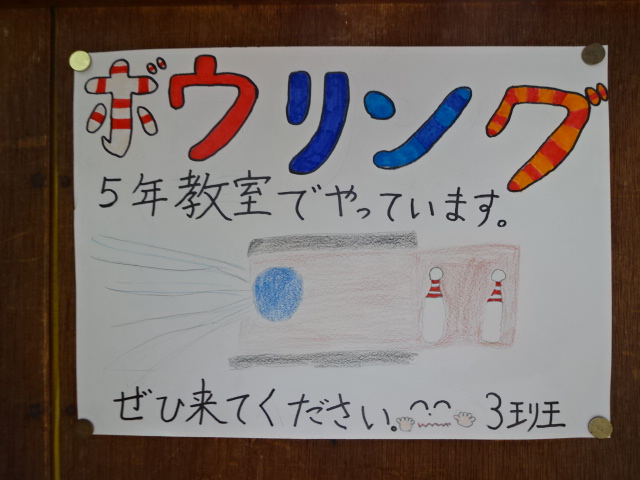 ボウリング
5年教室でやっています。
ぜひ来てください。3班